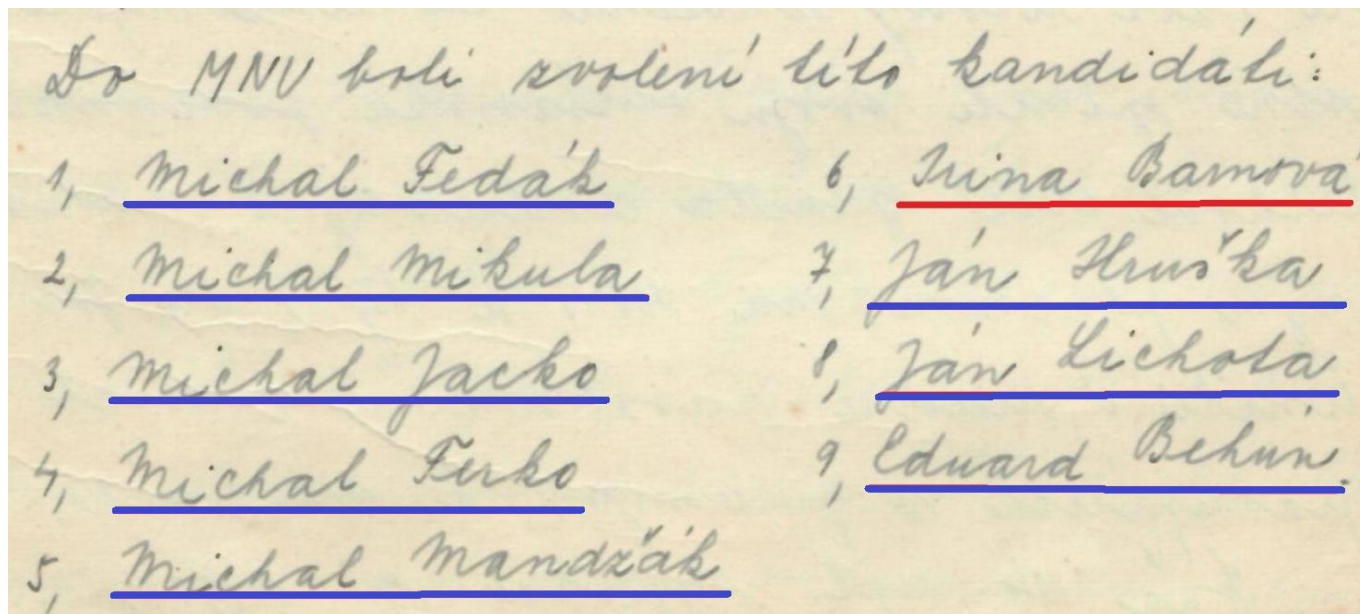 Do MNV boli zvolení títo kandidáti:
1, Michal Fedák
2, Michal Mikula
3, Michal Jacko
4, Michal Ferko
5, Michal Mandžák
6, Irina Bamová
7, Ján Hruška
8, Ján Lichota
9, Eduard Behún.